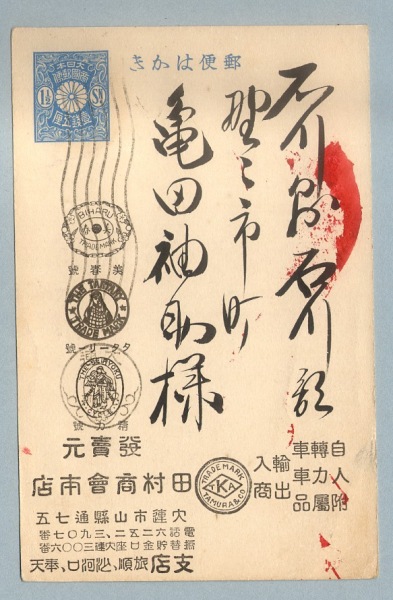 郵便はかき
大日本
帝國郵便
1½ Sn
壹錢五厘
石川縣石川郡
野々市町
亀田袖助様
BIHARU
TRADE MARK
美春號
THE TARTARY
TRADE MARK
タターリー號
精力號
自轉車
人力車
附屬品
輸出
入商
TRADE MARK
K
TAMURA & CO
發賣元
田村商會本店
大連市山縣通七五
電話六二五二、三九〇七番
振替貯金口座大連三〇〇六番
支店 旅順、沙河口、奉天